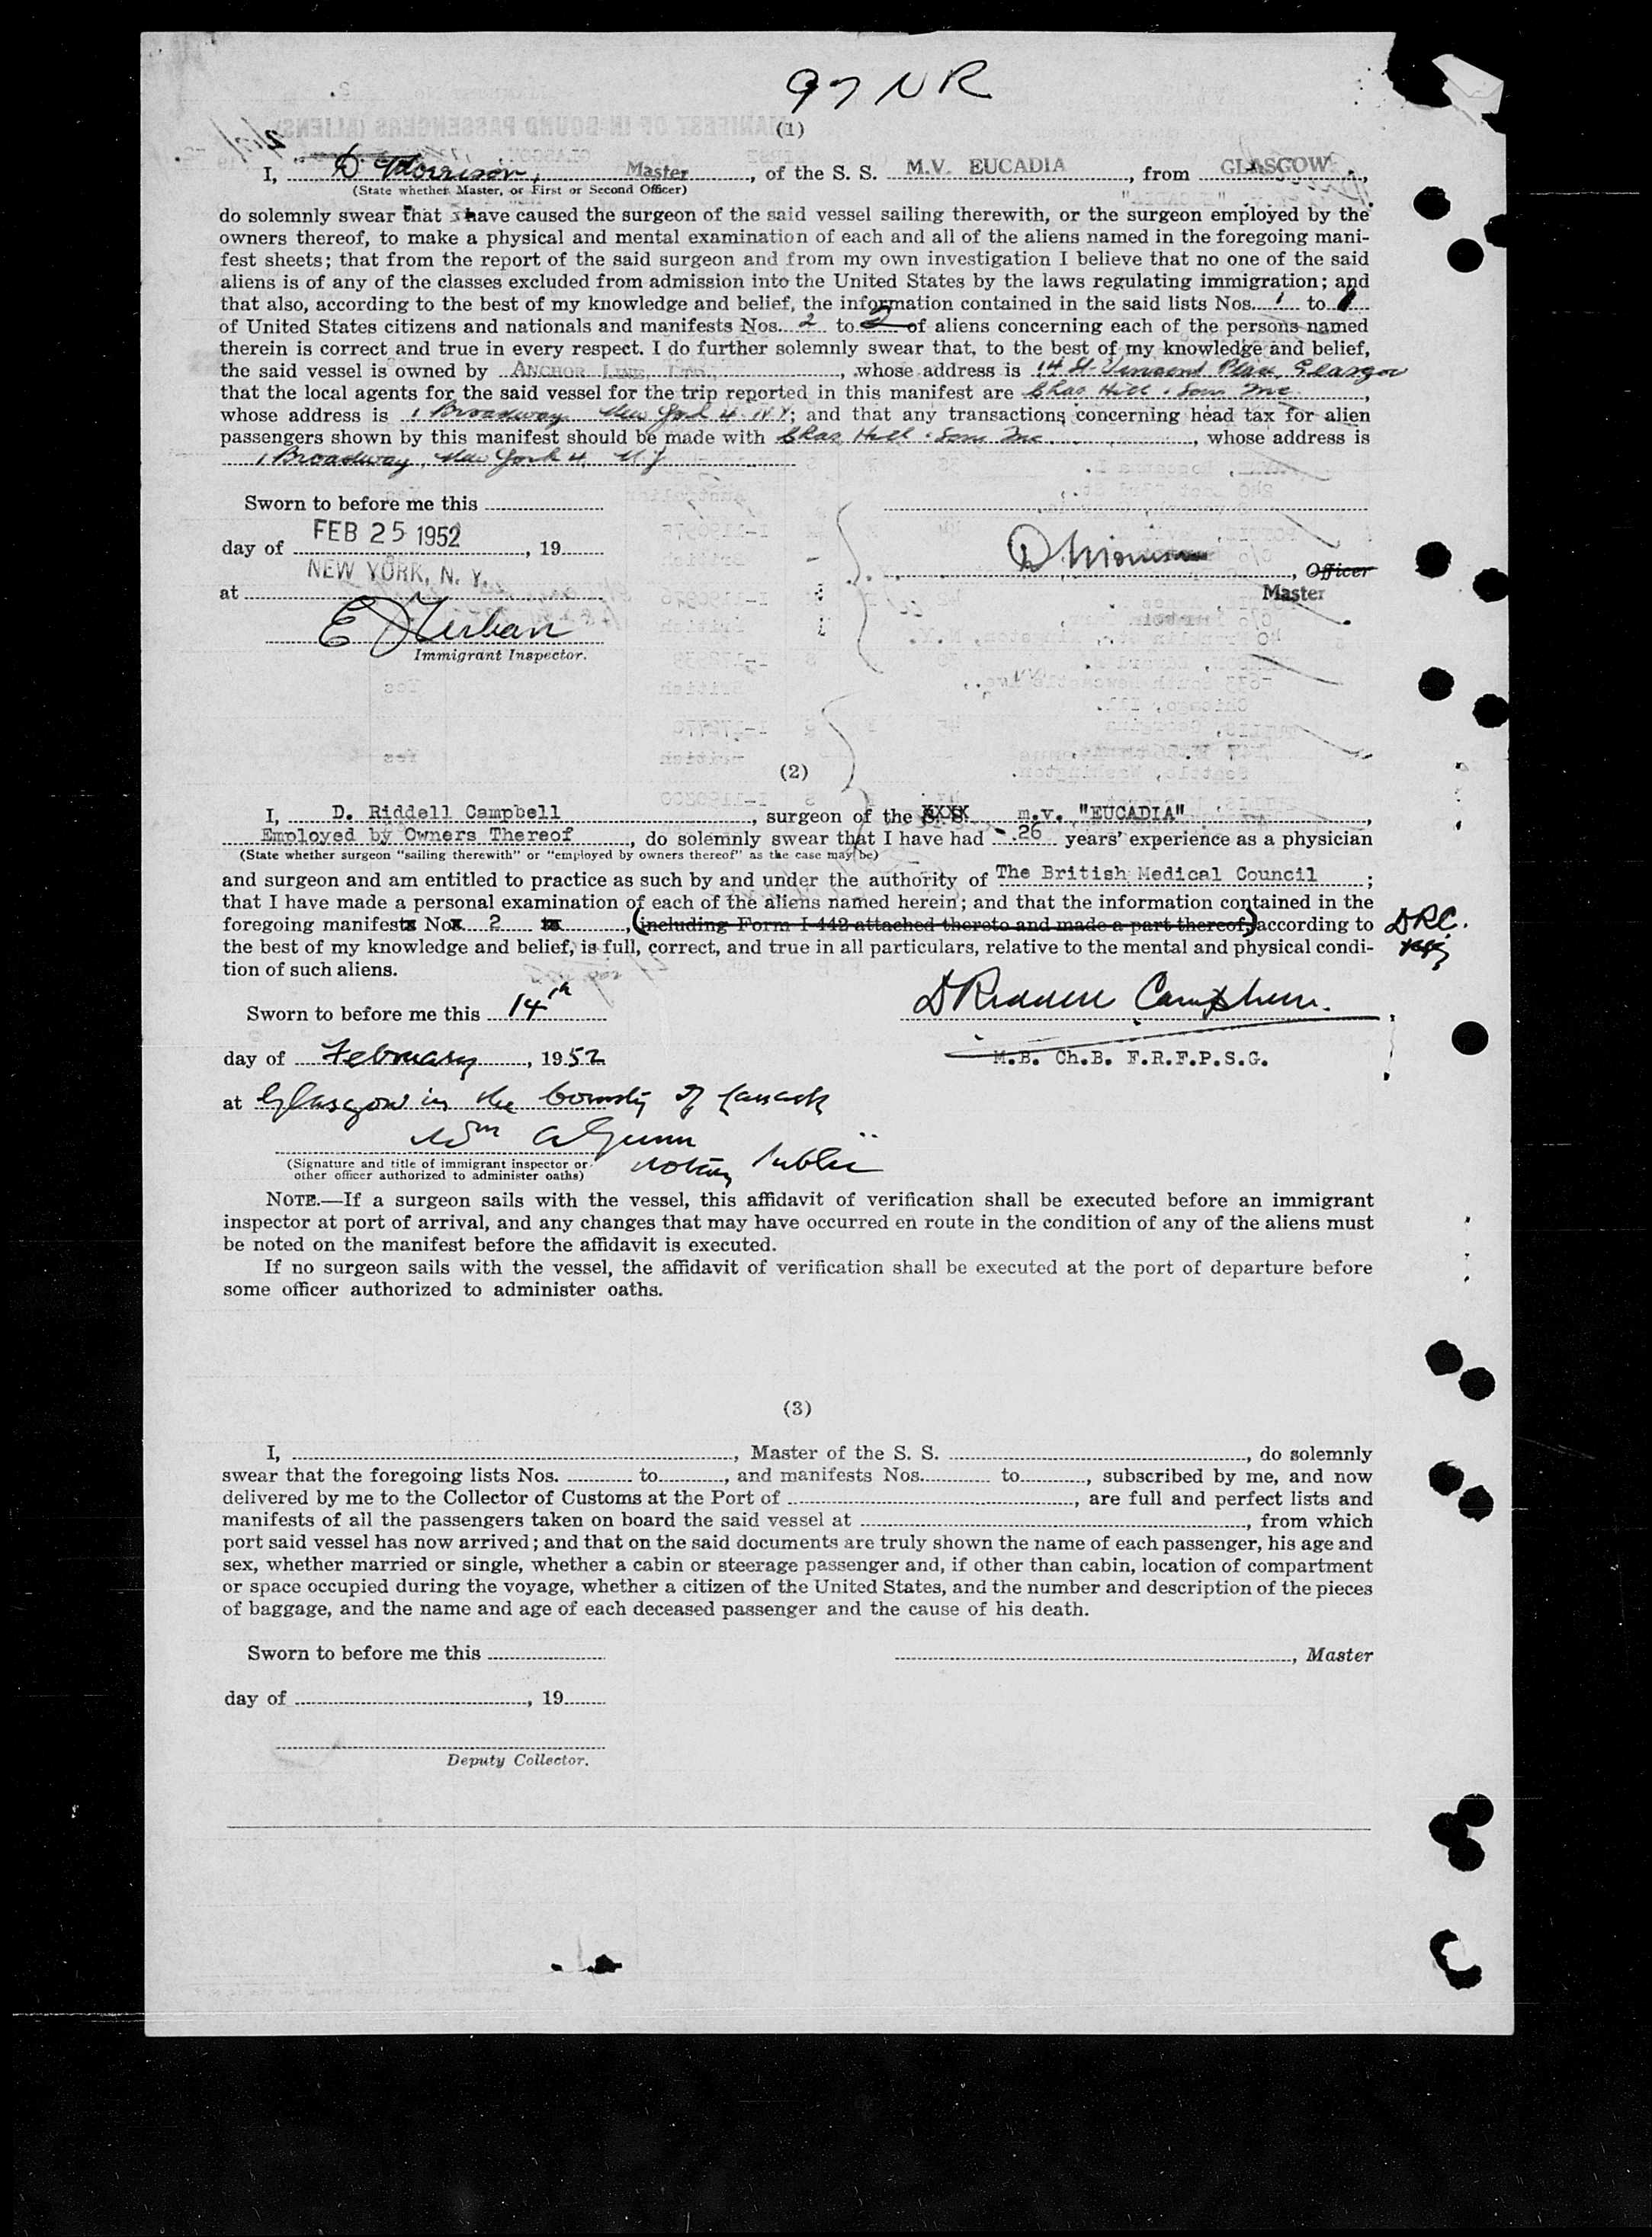 97 NR
(1)
I, D. Morrison, Master, of the S. S. M.V. EUCADIA, from GLASGOW,
(State whether Master, or First or Second Officer)
do solemnly swear that I have caused the surgeon of the said vessel sailing therewith, or the surgeon employed by the
owners thereof, to make a physical and mental examination of each and all of the aliens named in the foregoing mani-
fest sheets; that from the report of the said surgeon and from my own investigation I believe that no one of the said
aliens is of any of the classes excluded from admission into the United States by the laws regulating immigration; and
that also, according to the best of my knowledge and belief, the information contained in the said lists Nos. 1 to 1
of United States citizens and nationals and manifests Nos. 2 to 2 of aliens concerning each of the persons named
therein is correct and true in every respect. I do further solemnly swear that, to the best of my knowledge and belief,
the said vessel is owned by ANCHOR LINE, LTD., whose address is 14 St Vincent Place, Glasgow
that the local agents for the said vessel for the trip reported in this manifest are Chas Hill & Sons Inc,
whose address is 1 Broadway New York 4 N.Y; and that any transactions concerning head tax for alien
passengers shown by this manifest should be made with Chas Hill & Sons Inc, whose address is
1 Broadway, New York 4, N.Y
Sworn to before me this
day of FEB 25 1952, 19
D. Morrison, Officer
Master
at NEW YORK, N. Y.
Immigrant Inspector.
(2)
I, D. Riddell Campbell, surgeon of the S. S. m.v. "EUCADIA",
Employed by Owners Thereof, do solemnly swear that I have had 26 years' experience as a physician
(State whether surgeon "sailing therewith" or "employed by owners thereof" as the case may be)
and surgeon and am entitled to practice as such by and under the authority of The British Medical Council;
that I have made a personal examination of each of the aliens named herein; and that the information contained in the
foregoing manifests Nos 2 to, (including Form I-442 attached thereto and made a part thereof,) according to DRC.
the best of my knowledge and belief, is full, correct, and true in all particulars, relative to the mental and physical condi-
tion of such aliens.
Sworn to before me this 14th
D Riddell Campbell.
day of February, 1952
M.B. Ch.B. F.R.F.P.S.G.
at Glasgow in the County of Lanark
Wm A Gunn
Notary Public
(Signature and title of immigrant inspector or
other officer authorized to administer oaths)
NOTE.—If a surgeon sails with the vessel, this affidavit of verification shall be executed before an immigrant
inspector at port of arrival, and any changes that may have occurred en route in the condition of any of the aliens must
be noted on the manifest before the affidavit is executed.
If no surgeon sails with the vessel, the affidavit of verification shall be executed at the port of departure before
some officer authorized to administer oaths.
(3)
I, , Master of the S. S. , do solemnly
swear that the foregoing lists Nos. to , and manifests Nos. to , subscribed by me, and now
delivered by me to the Collector of Customs at the Port of , are full and perfect lists and
manifests of all the passengers taken on board the said vessel at , from which
port said vessel has now arrived; and that on the said documents are truly shown the name of each passenger, his age and
sex, whether married or single, whether a cabin or steerage passenger and, if other than cabin, location of compartment
or space occupied during the voyage, whether a citizen of the United States, and the number and description of the pieces
of baggage, and the name and age of each deceased passenger and the cause of his death.
Sworn to before me this
, Master
day of , 19
Deputy Collector.